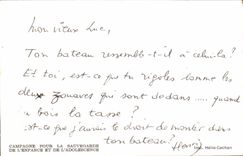 Mon vieux Luc,
Ton bateau ressemble-t-il à celui-là?
Et toi, est-ce que tu rigoles comme les
deux zouaves qui sont dedans ..... quand
tu bois la tasse?
est-ce que j'aurais le droit de monter dans
ton bateau?
CAMPAGNE POUR LA SAUVEGARDE
DE L'ENFANCE ET DE L'ADOLESCENCE
Imp. Hélio-Cachan